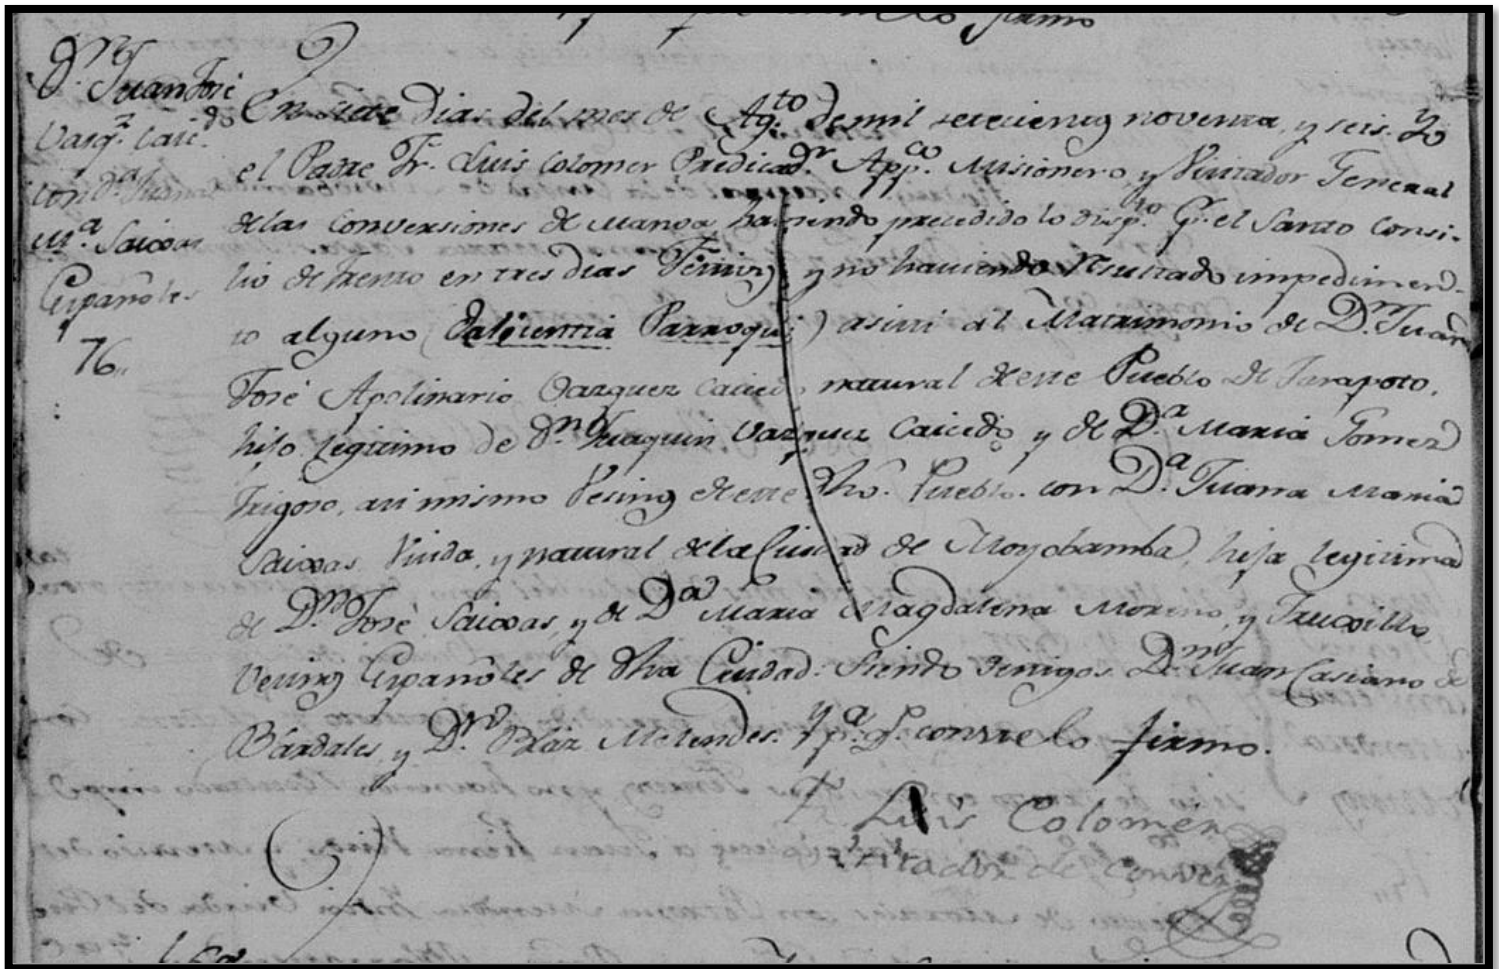 firmo
Dn. Juan José
Vasqz. Caicdo.
con Da. Juana
Ma. Saixas
Españoles
76
En siete dias del mes de Agto. de mil setecientos noventa, y seis. Yo
el Padre Fr. Luis Colomer Predicador. Appco. Misionero, y Visitador General
de las Conversiones de Manoa, haviendo precedido lo dispto. Pr. el Santo Consi-
lio de Trento en tres dias Festivos y no haviendo resultado impedimen-
to alguno (Dalicentia Parroqui) asisti al Matrimonio de Dn. Juan
José Apolinario Vazquez Caicedo natural de este Pueblo de Tarapoto,
hijo legitimo de Dn. Juaquin Vazquez Caicedo y de Da. Maria Gomez
Trigoso, asi mismo Vecinos de este dho. Pueblo. con Da. Juana Maria
Saixas Viuda, y natural de la Ciudad de Moyobamba, hija legitima
de Dn. José Saixas, y de Da. Maria Magdalena Moreno, y Truxillo
Vecinos Españoles de dha Ciudad. Siendo testigos Dn. Juan Casiano de
Bardales, y Dn. Blaz Melendes. Y pa. q. conste lo firmo.
Luis Colomer
Visitador de Conver